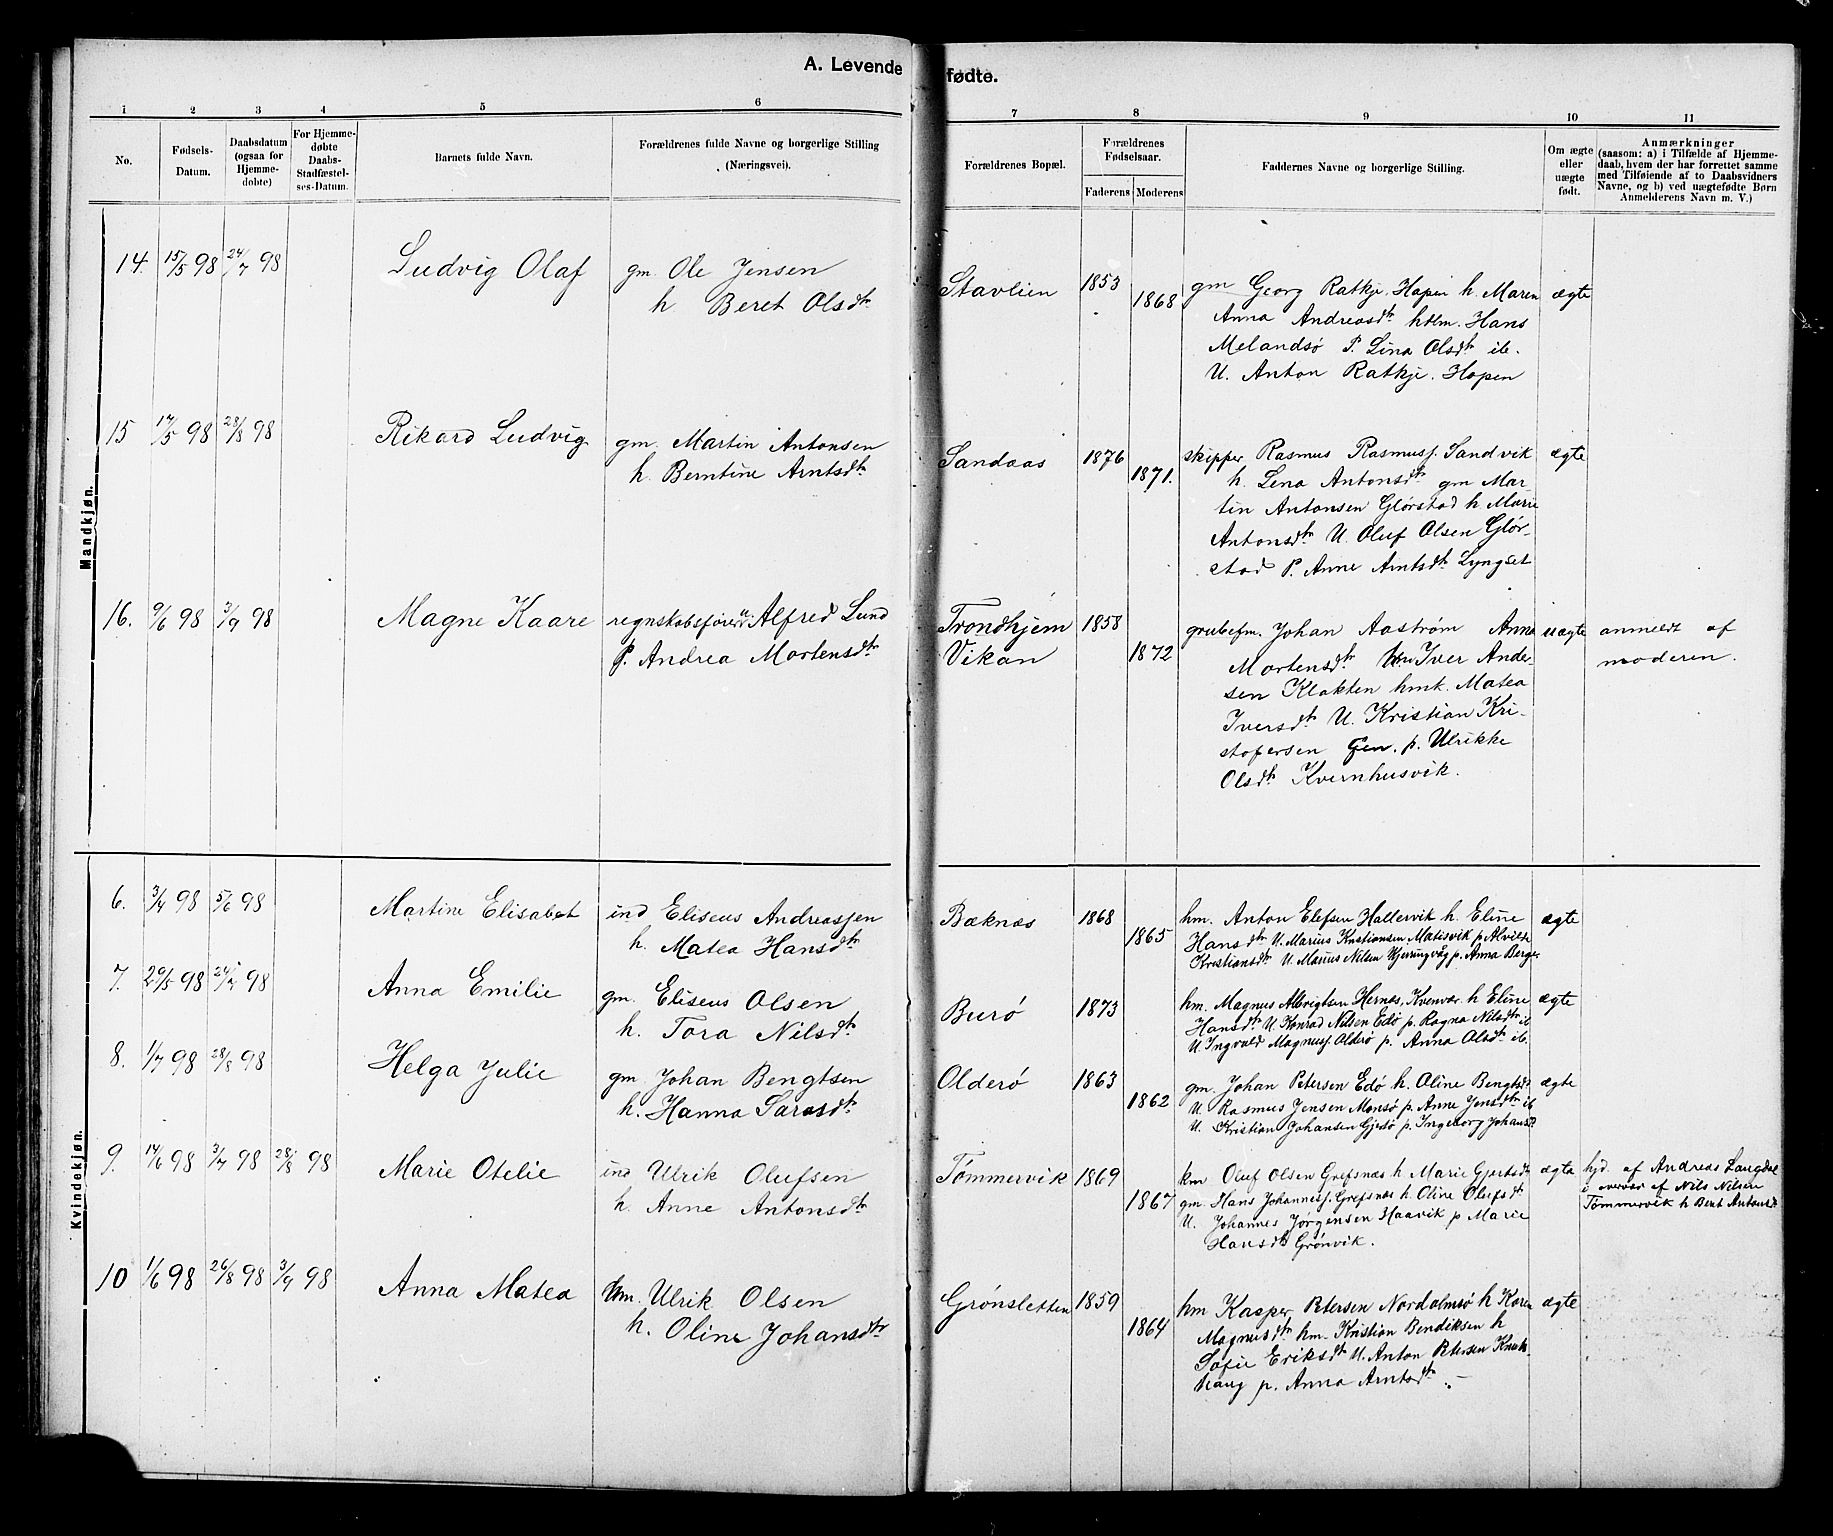 A. Levende fødte.
1 2 3 4 5 6 7 8 9 10 11
No.
Fødsels-Datum.
Daabsdatum (ogsaa for Hjemme-døbte)
For Hjemme-døbte Daabs-Stadfæstel-ses-Datum.
Barnets fulde Navn.
Forældrenes fulde Navne og borgerlige Stilling (Næringsvei).
Forældrenes Bopæl.
Forældrenes Fødselsaar.
Faderens Moderens
Faddernes Navne og borgerlige Stilling.
Om ægte eller uægte født.
Anmærkninger
(saasom: a) i Tilfælde af Hjemme-
daab, hvem der har forrettet samme
med Tilføiende af to Daabsvidners
Navne, og b) ved uægtefødte Børn
Anmelderens Navn m. V.)
Mandkjøn.
14. 15/5 98 24/7 98 Ludvig Olaf gm. Ole Jensen
h Beret Olsdtr
Stavlien 1853 1868
gm Georg Ratkje. Hopen h. Maren
Anna Andreasdtr hdm. Hans
Melandsø P. Lina Olsdtr ib.
U. Anton Ratkje. Hopen
ægte
15 17/5 98 28/8 98 Rikard Ludvig gm. Martin Antonsen
h. Berntine Arntsdtr
Sandaas 1876 1871.
skipper Rasmus Rasmuss. Sandvik
h. Lena Antonsdtr gm Mar
tin Antonsen Glørstad h Marie
Antonsdtr U. Oluf Olsen Glør-
stad P. Anne Arntsdtr Lyngset
ægte
16. 9/6 98 3/9 98 Magne Kaare regnskabsfører U. Alfred Lund
P. Andrea Mortensdtr
Trondhjem
Vikan
1858 1872
grubefm. Johan Aastrøm Anna
Mortensdtr Iver Ander-
sen Klakken hmk. Matea
Iversdtr U. Kristian Kri-
stofersen p. Ulrikke
Olsdtr Kvernhusvik.
uægte anmeldt af
moderen.
Kvindekjøn.
6. 3/4 98 5/6 98 Martine Elisabet ind Eliseus Andreassen
h. Matea Hansdtr
Bæknæs 1868 1865
hm. Anton Elefsen Hallervik h. Eline
Hansdtr U. Marius Kristiansen Matisvik p Alvilde
Kristiansdtr U. Marius Nilsen Hjerringvåg p. Anna Berge
ægte
7. 29/5 98 24/7 98 Anna Emilie gm. Eliseus Olsen
h. Tora Nilsdtr
Burø 1873
hm. Magnus Albrigtsen Hernæs, Kvenvær h Eline
Hansdtr U Konrad Nilsen Edø p. Ragna Nilsdtr ib
U. Ingvald Magnuss. Olderø p. Anna Olsdtr ib.
ægte
8. 1/7 98 28/8 98 Helga Julie gm Johan Bengtsen
h. Hanna Sarasdtr
Olderø 1863 1862
gm. Johan Petersen Edø h. Oline Bengtsdtr
U. Rasmus Jensen Monsø p. Anne Jensdtr ib
U. Kristian Johansen Gjedø p. Ingeborg Johansd
ægte
9. 17/6 98 3/7 98 28/8 98 Marie Otelie ind Ulrik Olufsen
h. Anne Antonsdtr
Tømmervik 1869 1867
km Oluf Olsen Grefsnæs h Marie Gjertsdtr
gm. Hans Johanness. Grefsnæs h. Oline Olufsdtr
U. Johannes Jørgensen Haavik p Marie
Hansdtr Grønvik.
ægte
hjd. af Andreas Langdal
i overvær af Nils Nilsen
Tømmervik h Berit Antonsd
10 1/6 98 26/8 98 3/9 98 Anna Matea hm. Ulrik Olsen
h. Oline Johansdtr
Grønsletten 1859 1864
hm Kasper Petersen Nordolmsø h Karen
Magnusdtr hm. Kristian Bendiksen h
Sofie Eriksdtr U. Anton Petersen Knuk
haug p. Anna Arntsdtr.
ægte